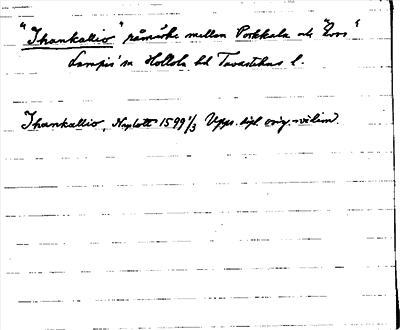 "Ihankallio" råmärke mellan Porkkala och "Evos"
Lampis' sn Hollola hd Tavastehus l.
Ihankallio, Naplott 1599 1/3 Upps. dipl. orig.